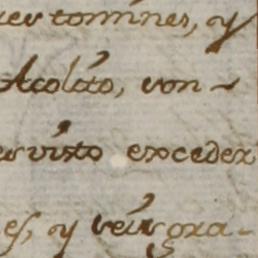 tomines, y
Acolito, con~
visto exceder
es, y vein gra-